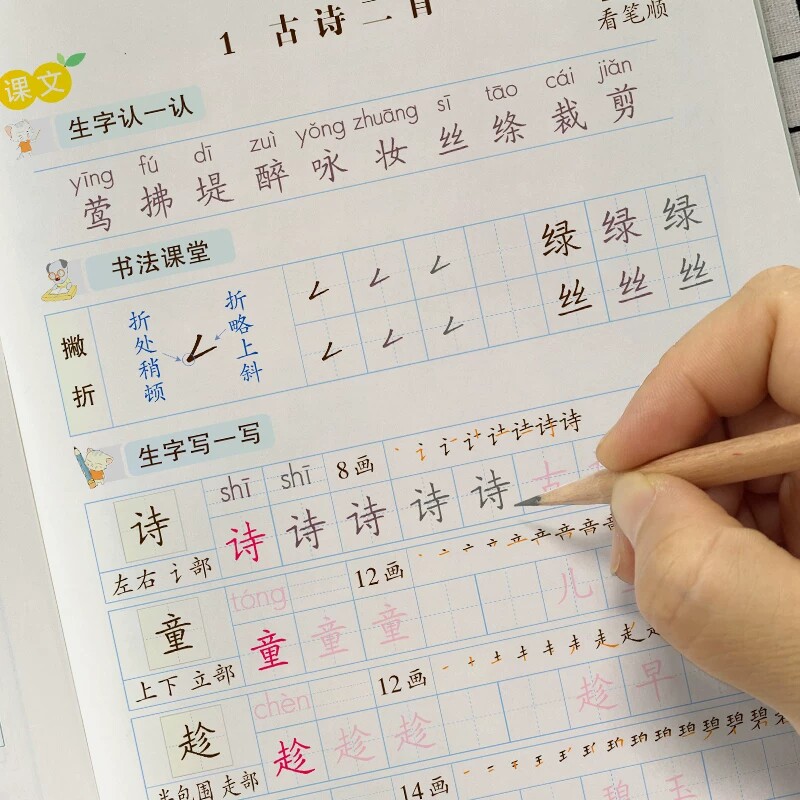 看笔顺
1 古诗二首
课文
生字认一认
yīng fú dī zuì yǒng zhuāng sī tāo cái jiǎn
莺 拂 堤 醉 咏 妆 丝 绦 裁 剪
书法课堂
撇折
折处稍顿
折略上斜
绿 绿 绿
丝 丝 丝
生字写一写
shī shī 8画
诗 诗 诗 诗 诗 诗 古
左右 讠部
tóng 12画
童 童 童 童 儿
上下 立部
chèn 12画
趁 趁 趁 趁 趁 早
半包围 走部
14画
碧 玉